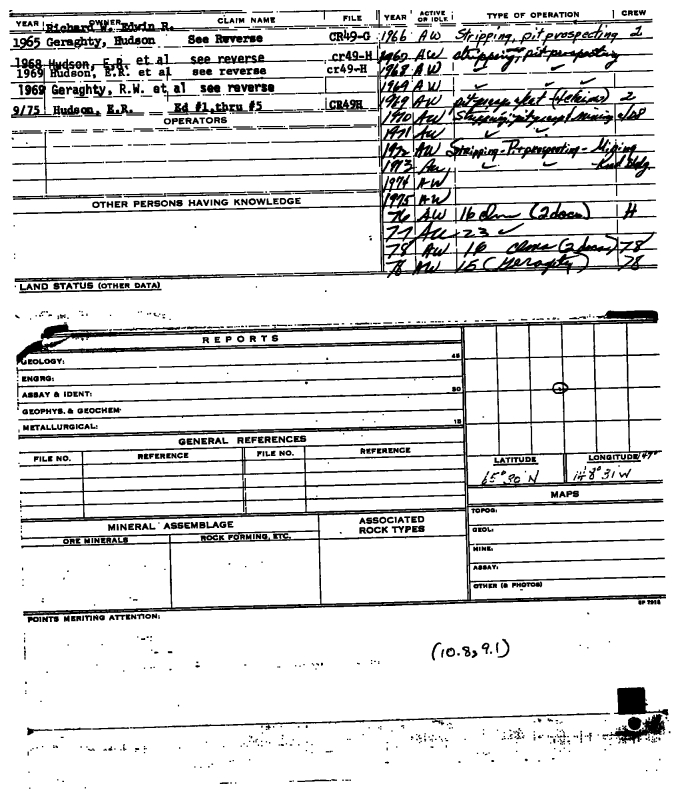 YEAR OWNER CLAIM NAME FILE YEAR ACTIVE OR IDLE TYPE OF OPERATION CREW
Richard W. Edwin R.
1965 Geraghty, Hudson See Reverse CR49-G 1966 AW Stripping, pit prospecting 2
1968 Hudson, E.R. et al see reverse cr49-H 1967 AW stripping, pit prospecting
1969 Hudson, E.R. et al see reverse cr49-H 1968 AW ✓ ✓
1969 Geraghty, R.W. et al see reverse 1969 AW ✓
1969 AW 2
9/75 Hudson, E.R. Ed #1,thru #5 CR49H 1970 AW Stripping, mining
OPERATORS
1971 AW ✓ ✓
1972 AW Stripping - Pit prospecting - Mining
1973 AW ✓ ✓ - Road Bldg.
1974 AW
1975 AW
OTHER PERSONS HAVING KNOWLEDGE
76 AW 16 clms (2 docs) H
77 AW - 23 ✓
78 AW 16 clms (2 docs) 78
78 AW 15 (Geraghty) 78
LAND STATUS (OTHER DATA)
REPORTS
GEOLOGY: 45
ENGRG:
ASSAY & IDENT: 30
GEOPHYS. & GEOCHEM.
METALLURGICAL: 15
GENERAL REFERENCES
FILE NO. REFERENCE FILE NO. REFERENCE
LATITUDE LONGITUDE 147°
65° 30' N 148° 31' W
MAPS
TOPOG:
GEOL:
MINE:
ASSAY:
OTHER (& PHOTOS)
MINERAL ASSEMBLAGE ASSOCIATED ROCK TYPES
ORE MINERALS ROCK FORMING, ETC.
POINTS MERITING ATTENTION:
(10.8, 9.1)